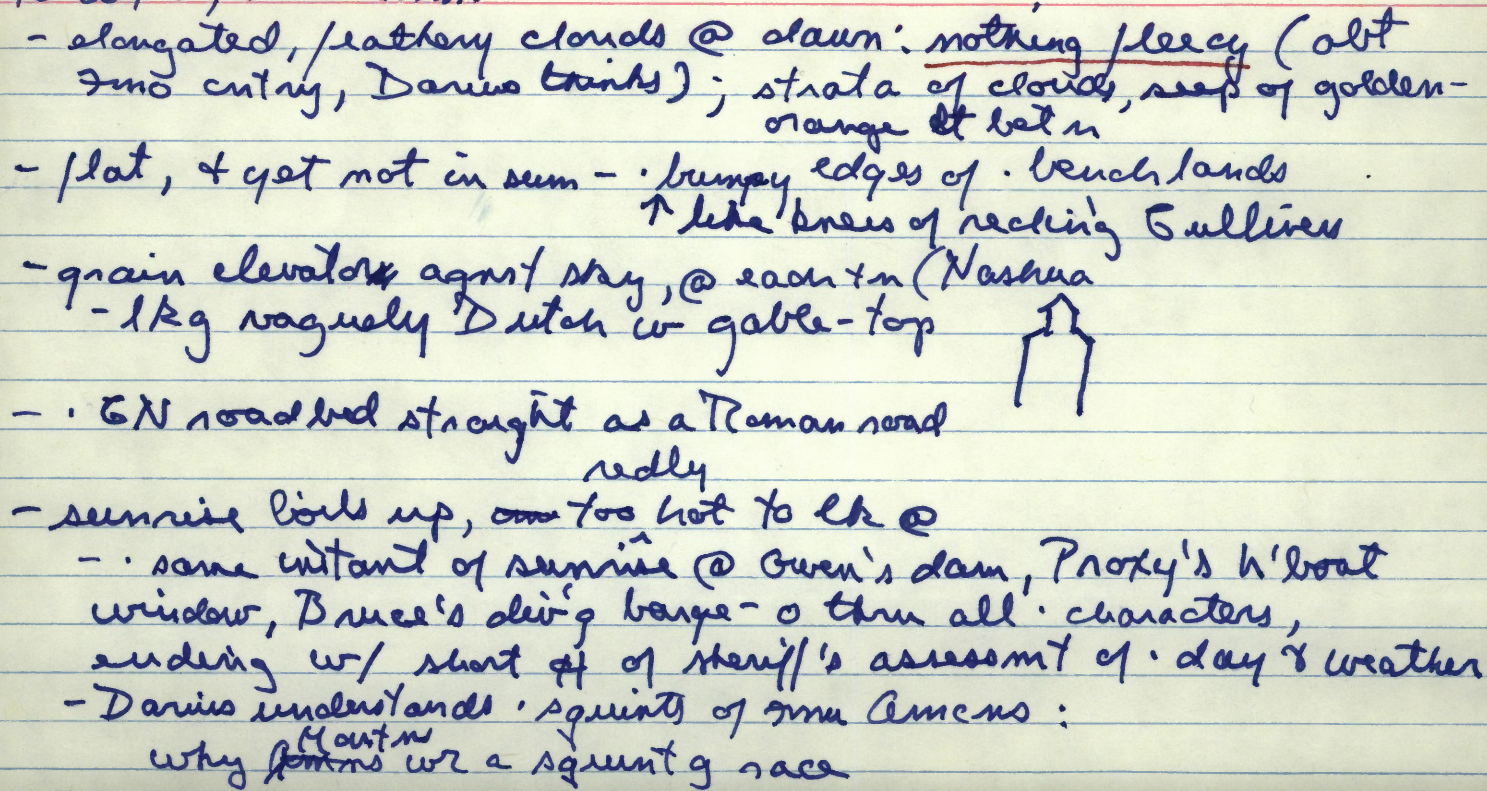 - elongated, feathery clouds @ dawn: nothing fleecy (abt
cntry, Darius thinks); strata of clouds, seep of golden-
orange lt betn
- flat, & yet not in sum - · bumpy edges of · benchlands
↑ like knees of Gullivers
- grain elevators agnst sky, @ each tn (Nashua
- lkg vaguely Dutch w gable-top
- · GN roadbed straight as a Roman road
redly
- sunrise boils up, too hot to lk @
- · same instant of sunrise @ Owen's dam, Proxy's h'boat
window, Bruce's div'g barge - thru all · characters,
ending w/ short of sheriff's assessmt of · day & weather
- Darius understands · squints of Amcns:
Montns
why wr a squintg race